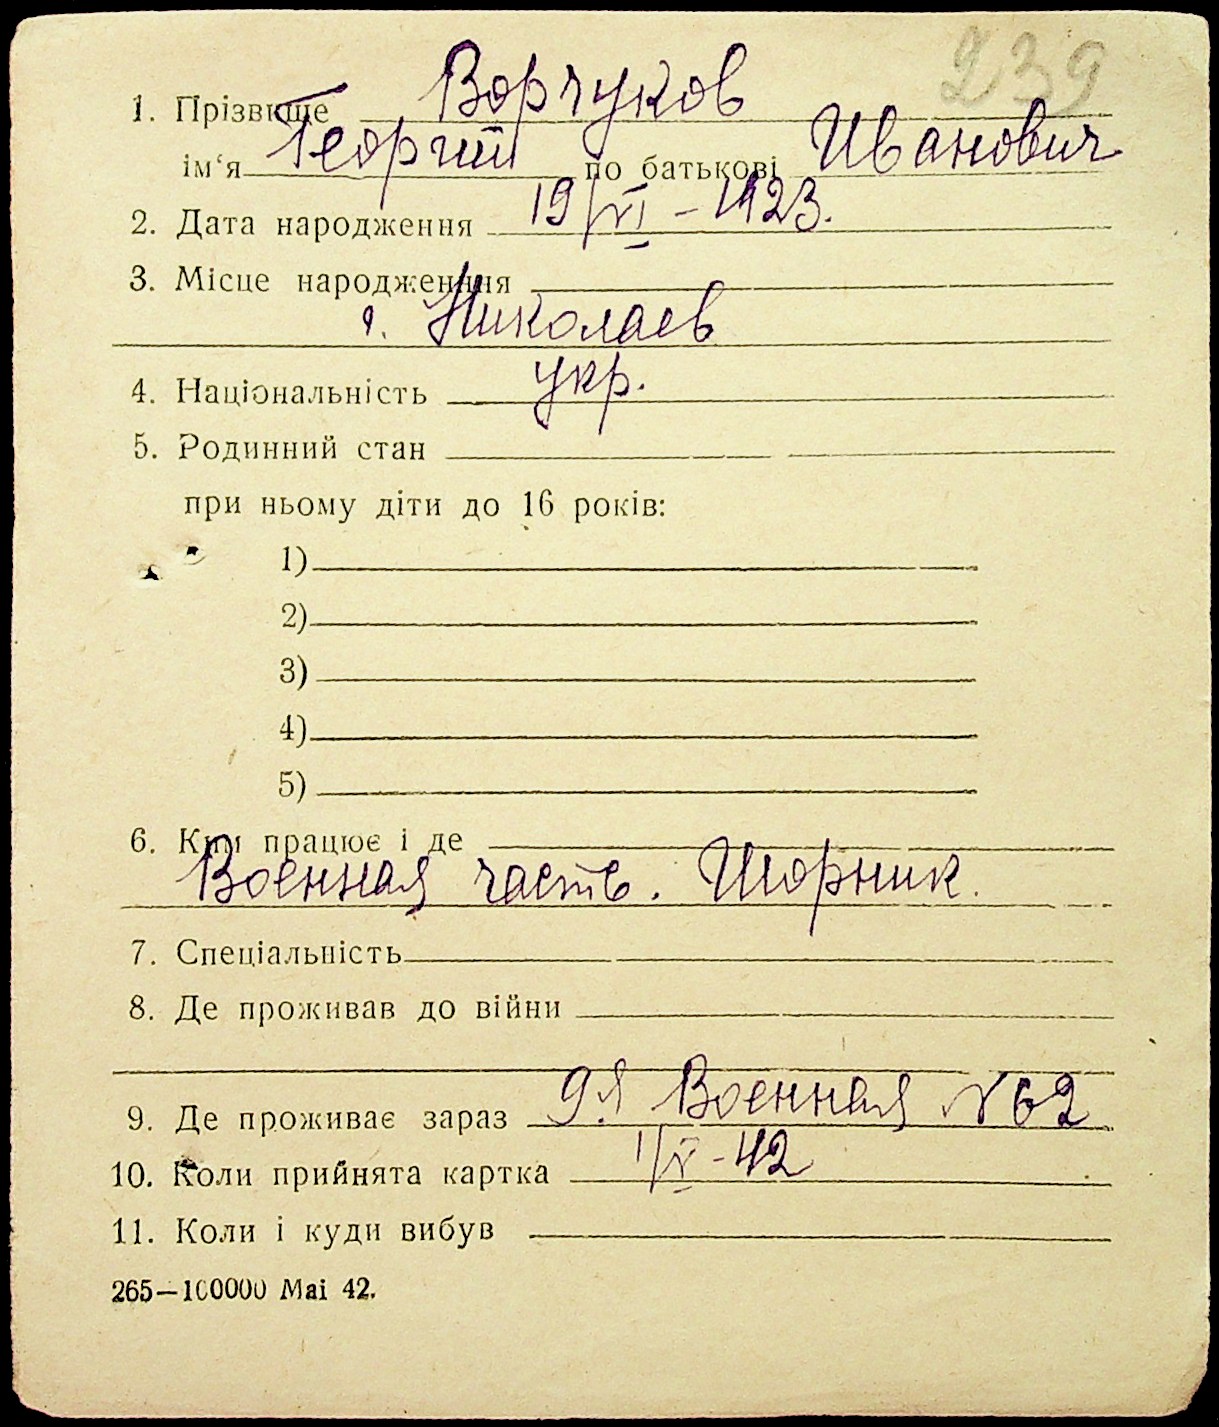 239
1. Прізвище Ворчуков
ім‘я Георгий по батькові Иванович
2. Дата народження 19/VI – 1923.
3. Місце народження
г. Николаев
4. Національність укр.
5. Родинний стан
при ньому діти до 16 років:
1)
2)
3)
4)
5)
6. Ким працює і де
Военная часть. Шорник.
7. Спеціальність
8. Де проживав до війни
9. Де проживає зараз 9я Военная №62
10. Коли прийнята картка 1/V-42
11. Коли і куди вибув
265—100000 Mai 42.